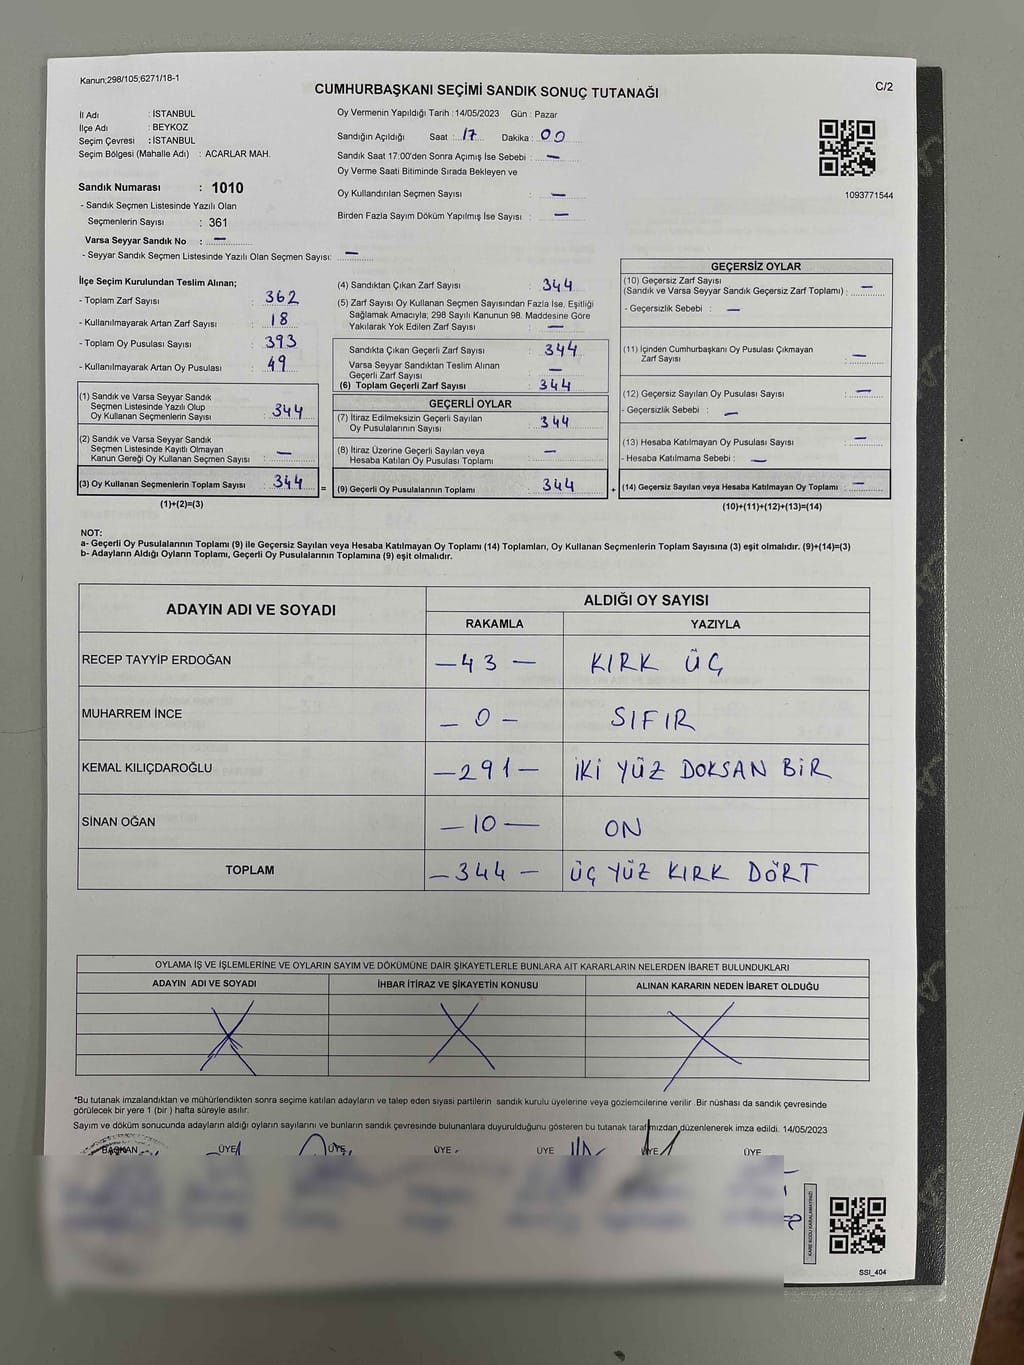 Kanun;298/105;6271/18-1
C/2
CUMHURBAŞKANI SEÇİMİ SANDIK SONUÇ TUTANAĞI
İl Adı : İSTANBUL
İlçe Adı : BEYKOZ
Seçim Çevresi : İSTANBUL
Seçim Bölgesi (Mahalle Adı) : ACARLAR MAH.
Sandık Numarası : 1010
- Sandık Seçmen Listesinde Yazılı Olan
Seçmenlerin Sayısı : 361
Varsa Seyyar Sandık No : —
- Seyyar Sandık Seçmen Listesinde Yazılı Olan Seçmen Sayısı: —
Oy Vermenin Yapıldığı Tarih : 14/05/2023 Gün : Pazar
Sandığın Açıldığı Saat : 17 Dakika : 00
Sandık Saat 17:00'den Sonra Açımış İse Sebebi : —
Oy Verme Saati Bitiminde Sırada Bekleyen ve
Oy Kullandırılan Seçmen Sayısı : —
Birden Fazla Sayım Döküm Yapılmış İse Sayısı : —
1093771544
İlçe Seçim Kurulundan Teslim Alınan;
- Toplam Zarf Sayısı : 362
- Kullanılmayarak Artan Zarf Sayısı : 18
- Toplam Oy Pusulası Sayısı : 393
- Kullanılmayarak Artan Oy Pusulası : 49
(1) Sandık ve Varsa Seyyar Sandık
Seçmen Listesinde Yazılı Olup
Oy Kullanan Seçmenlerin Sayısı : 344
(2) Sandık ve Varsa Seyyar Sandık
Seçmen Listesinde Kayıtlı Olmayan
Kanun Gereği Oy Kullanan Seçmen Sayısı : —
(3) Oy Kullanan Seçmenlerin Toplam Sayısı : 344 =
(1)+(2)=(3)
(4) Sandıktan Çıkan Zarf Sayısı : 344
(5) Zarf Sayısı Oy Kullanan Seçmen Sayısından Fazla İse, Eşitliği
Sağlamak Amacıyla; 298 Sayılı Kanunun 98. Maddesine Göre
Yakılarak Yok Edilen Zarf Sayısı : —
Sandıkta Çıkan Geçerli Zarf Sayısı : 344
Varsa Seyyar Sandıktan Teslim Alınan
Geçerli Zarf Sayısı : —
(6) Toplam Geçerli Zarf Sayısı : 344
GEÇERLİ OYLAR
(7) İtiraz Edilmeksizin Geçerli Sayılan
Oy Pusulalarının Sayısı : 344
(8) İtiraz Üzerine Geçerli Sayılan veya
Hesaba Katılan Oy Pusulası Toplamı : —
(9) Geçerli Oy Pusulalarının Toplamı : 344 +
GEÇERSİZ OYLAR
(10) Geçersiz Zarf Sayısı
(Sandık ve Varsa Seyyar Sandık Geçersiz Zarf Toplamı) : —
- Geçersizlik Sebebi : —
(11) İçinden Cumhurbaşkanı Oy Pusulası Çıkmayan
Zarf Sayısı : —
(12) Geçersiz Sayılan Oy Pusulası Sayısı : —
- Geçersizlik Sebebi : —
(13) Hesaba Katılmayan Oy Pusulası Sayısı : —
- Hesaba Katılmama Sebebi : —
(14) Geçersiz Sayılan veya Hesaba Katılmayan Oy Toplamı : —
(10)+(11)+(12)+(13)=(14)
NOT:
a- Geçerli Oy Pusulalarının Toplamı (9) ile Geçersiz Sayılan veya Hesaba Katılmayan Oy Toplamı (14) Toplamları, Oy Kullanan Seçmenlerin Toplam Sayısına (3) eşit olmalıdır. (9)+(14)=(3)
b- Adayların Aldığı Oyların Toplamı, Geçerli Oy Pusulalarının Toplamına (9) eşit olmalıdır.
ADAYIN ADI VE SOYADI
ALDIĞI OY SAYISI
RAKAMLA YAZIYLA
RECEP TAYYİP ERDOĞAN —43— KIRK ÜÇ
MUHARREM İNCE —0— SIFIR
KEMAL KILIÇDAROĞLU —291— İKİ YÜZ DOKSAN BİR
SİNAN OĞAN —10— ON
TOPLAM —344— ÜÇ YÜZ KIRK DÖRT
OYLAMA İŞ VE İŞLEMLERİNE VE OYLARIN SAYIM VE DÖKÜMÜNE DAİR ŞİKAYETLERLE BUNLARA AİT KARARLARIN NELERDEN İBARET BULUNDUKLARI
ADAYIN ADI VE SOYADI İHBAR İTİRAZ VE ŞİKAYETİN KONUSU ALINAN KARARIN NEDEN İBARET OLDUĞU
*Bu tutanak imzalandıktan ve mühürlendikten sonra seçime katılan adayların ve talep eden siyasi partilerin sandık kurulu üyelerine veya gözlemcilerine verilir. Bir nüshası da sandık çevresinde
görülecek bir yere 1 (bir ) hafta süreyle asılır.
Sayım ve döküm sonucunda adayların aldığı oyların sayılarını ve bunların sandık çevresinde bulunanlara duyurulduğunu gösteren bu tutanak tarafımızdan düzenlenerek imza edildi. 14/05/2023
BAŞKAN ÜYE ÜYE ÜYE ÜYE ÜYE ÜYE
KARE KODU KARALAMAYINIZ!
SSI_404